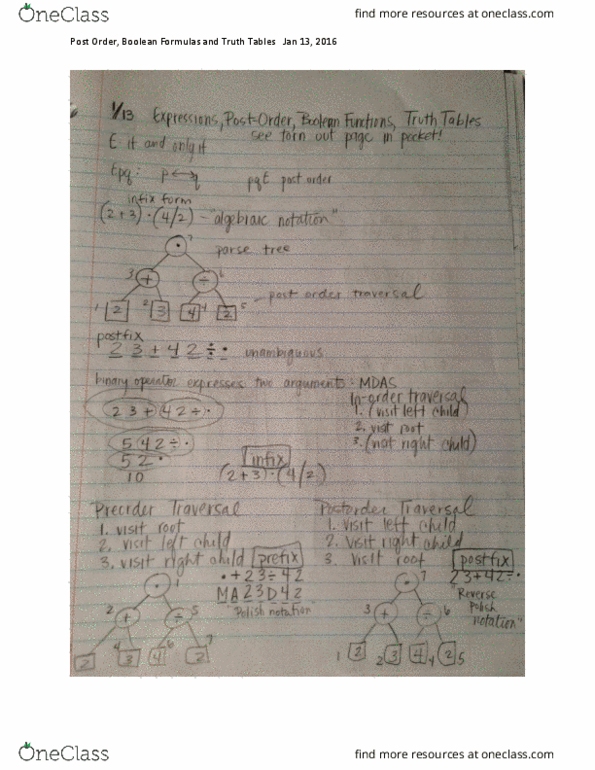 OneClass
find more resources at oneclass.com
Post Order, Boolean Formulas and Truth Tables Jan 13, 2016
1/13 Expressions, Post-Order, Boolean Functions, Truth Tables
see torn out page in pocket!
E if and only if
Epq: p↔q pqE post order
infix form
(2+3)·(4/2) - "algebraic notation"
· 7 parse tree
3 + ÷ 6
1 2 2 3 4 4 2 5 - post order traversal
postfix
2 3 + 4 2 ÷ · unambiguous
binary operator expresses two arguments: MDAS
In-order traversal
2 3 + 4 2 ÷ · 1. (visit left child)
2. visit root
5 4 2 ÷ · 3. (visit right child)
5 2 · infix
10 (2+3)·(4/2)
Preorder Traversal Postorder Traversal
1. visit root 1. visit left child
2. visit left child 2. visit right child
3. visit right child prefix 3. visit root postfix
· 1 · + 2 3 ÷ 4 2 · 7 2 3 + 4 2 ÷ ·
2 + ÷ 5 M A 2 3 D 4 2 3 + ÷ 6 Reverse
"Polish notation" Polish
notation"
2 4 3 4 6 2 7 1 2 2 3 4 4 2 5
OneClass
find more resources at oneclass.com